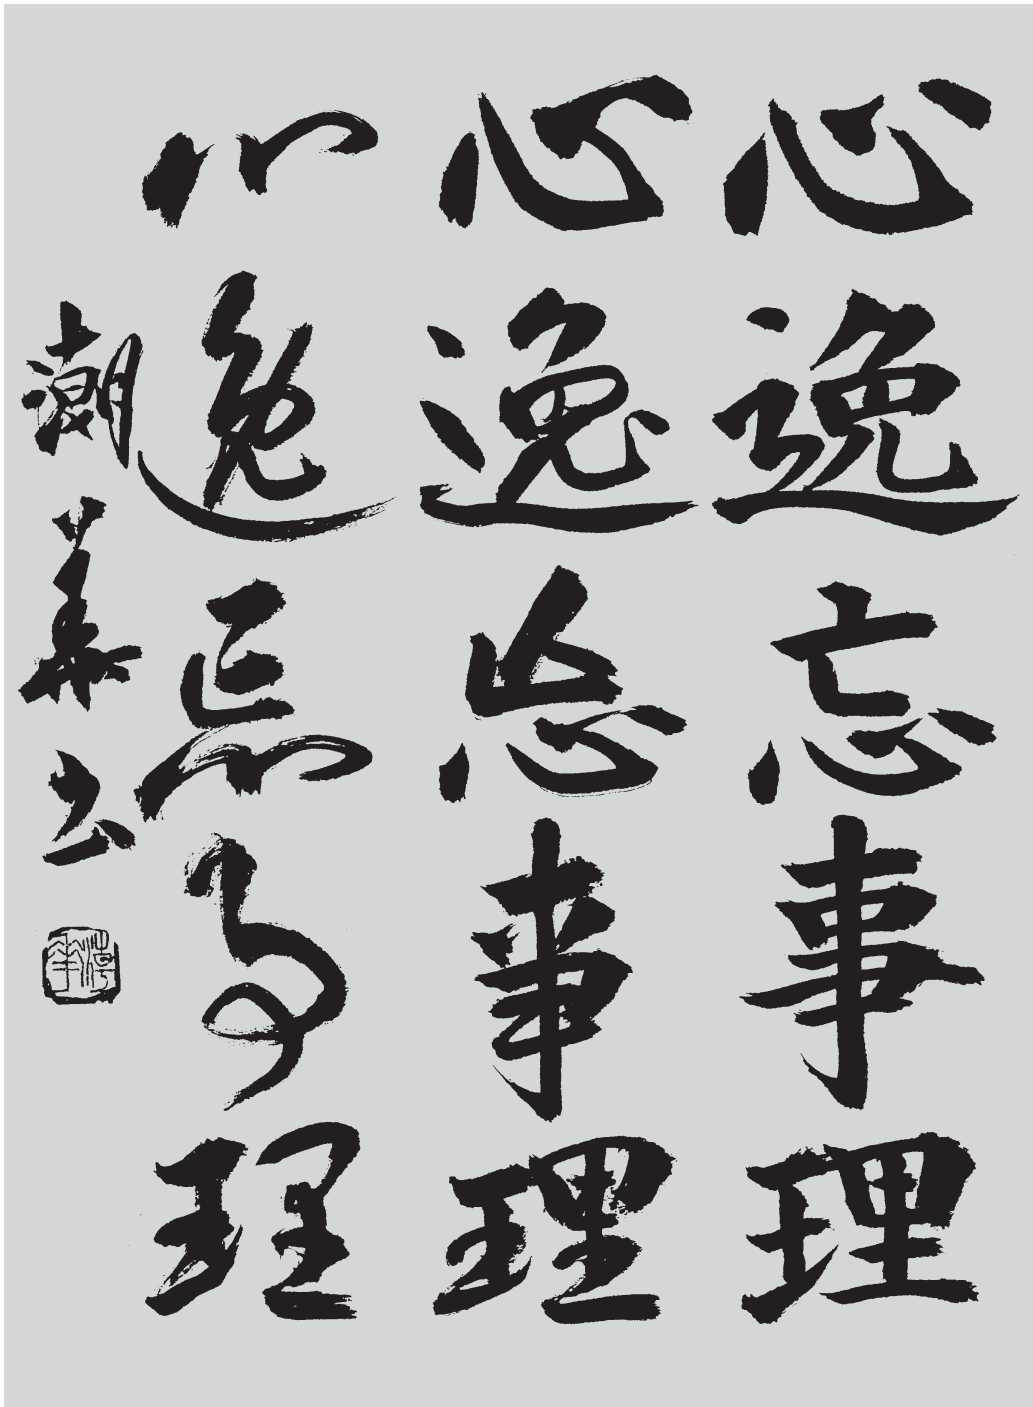 心逸忘事理
心逸忘事理
心逸忘事理
潮華書